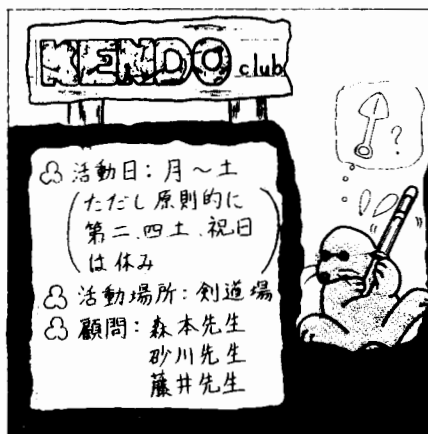 KENDO club
?
活動日：月～土
(ただし原則的に
第二、四土、祝日
は休み)
活動場所：剣道場
顧問：森本先生
砂川先生
藤井先生